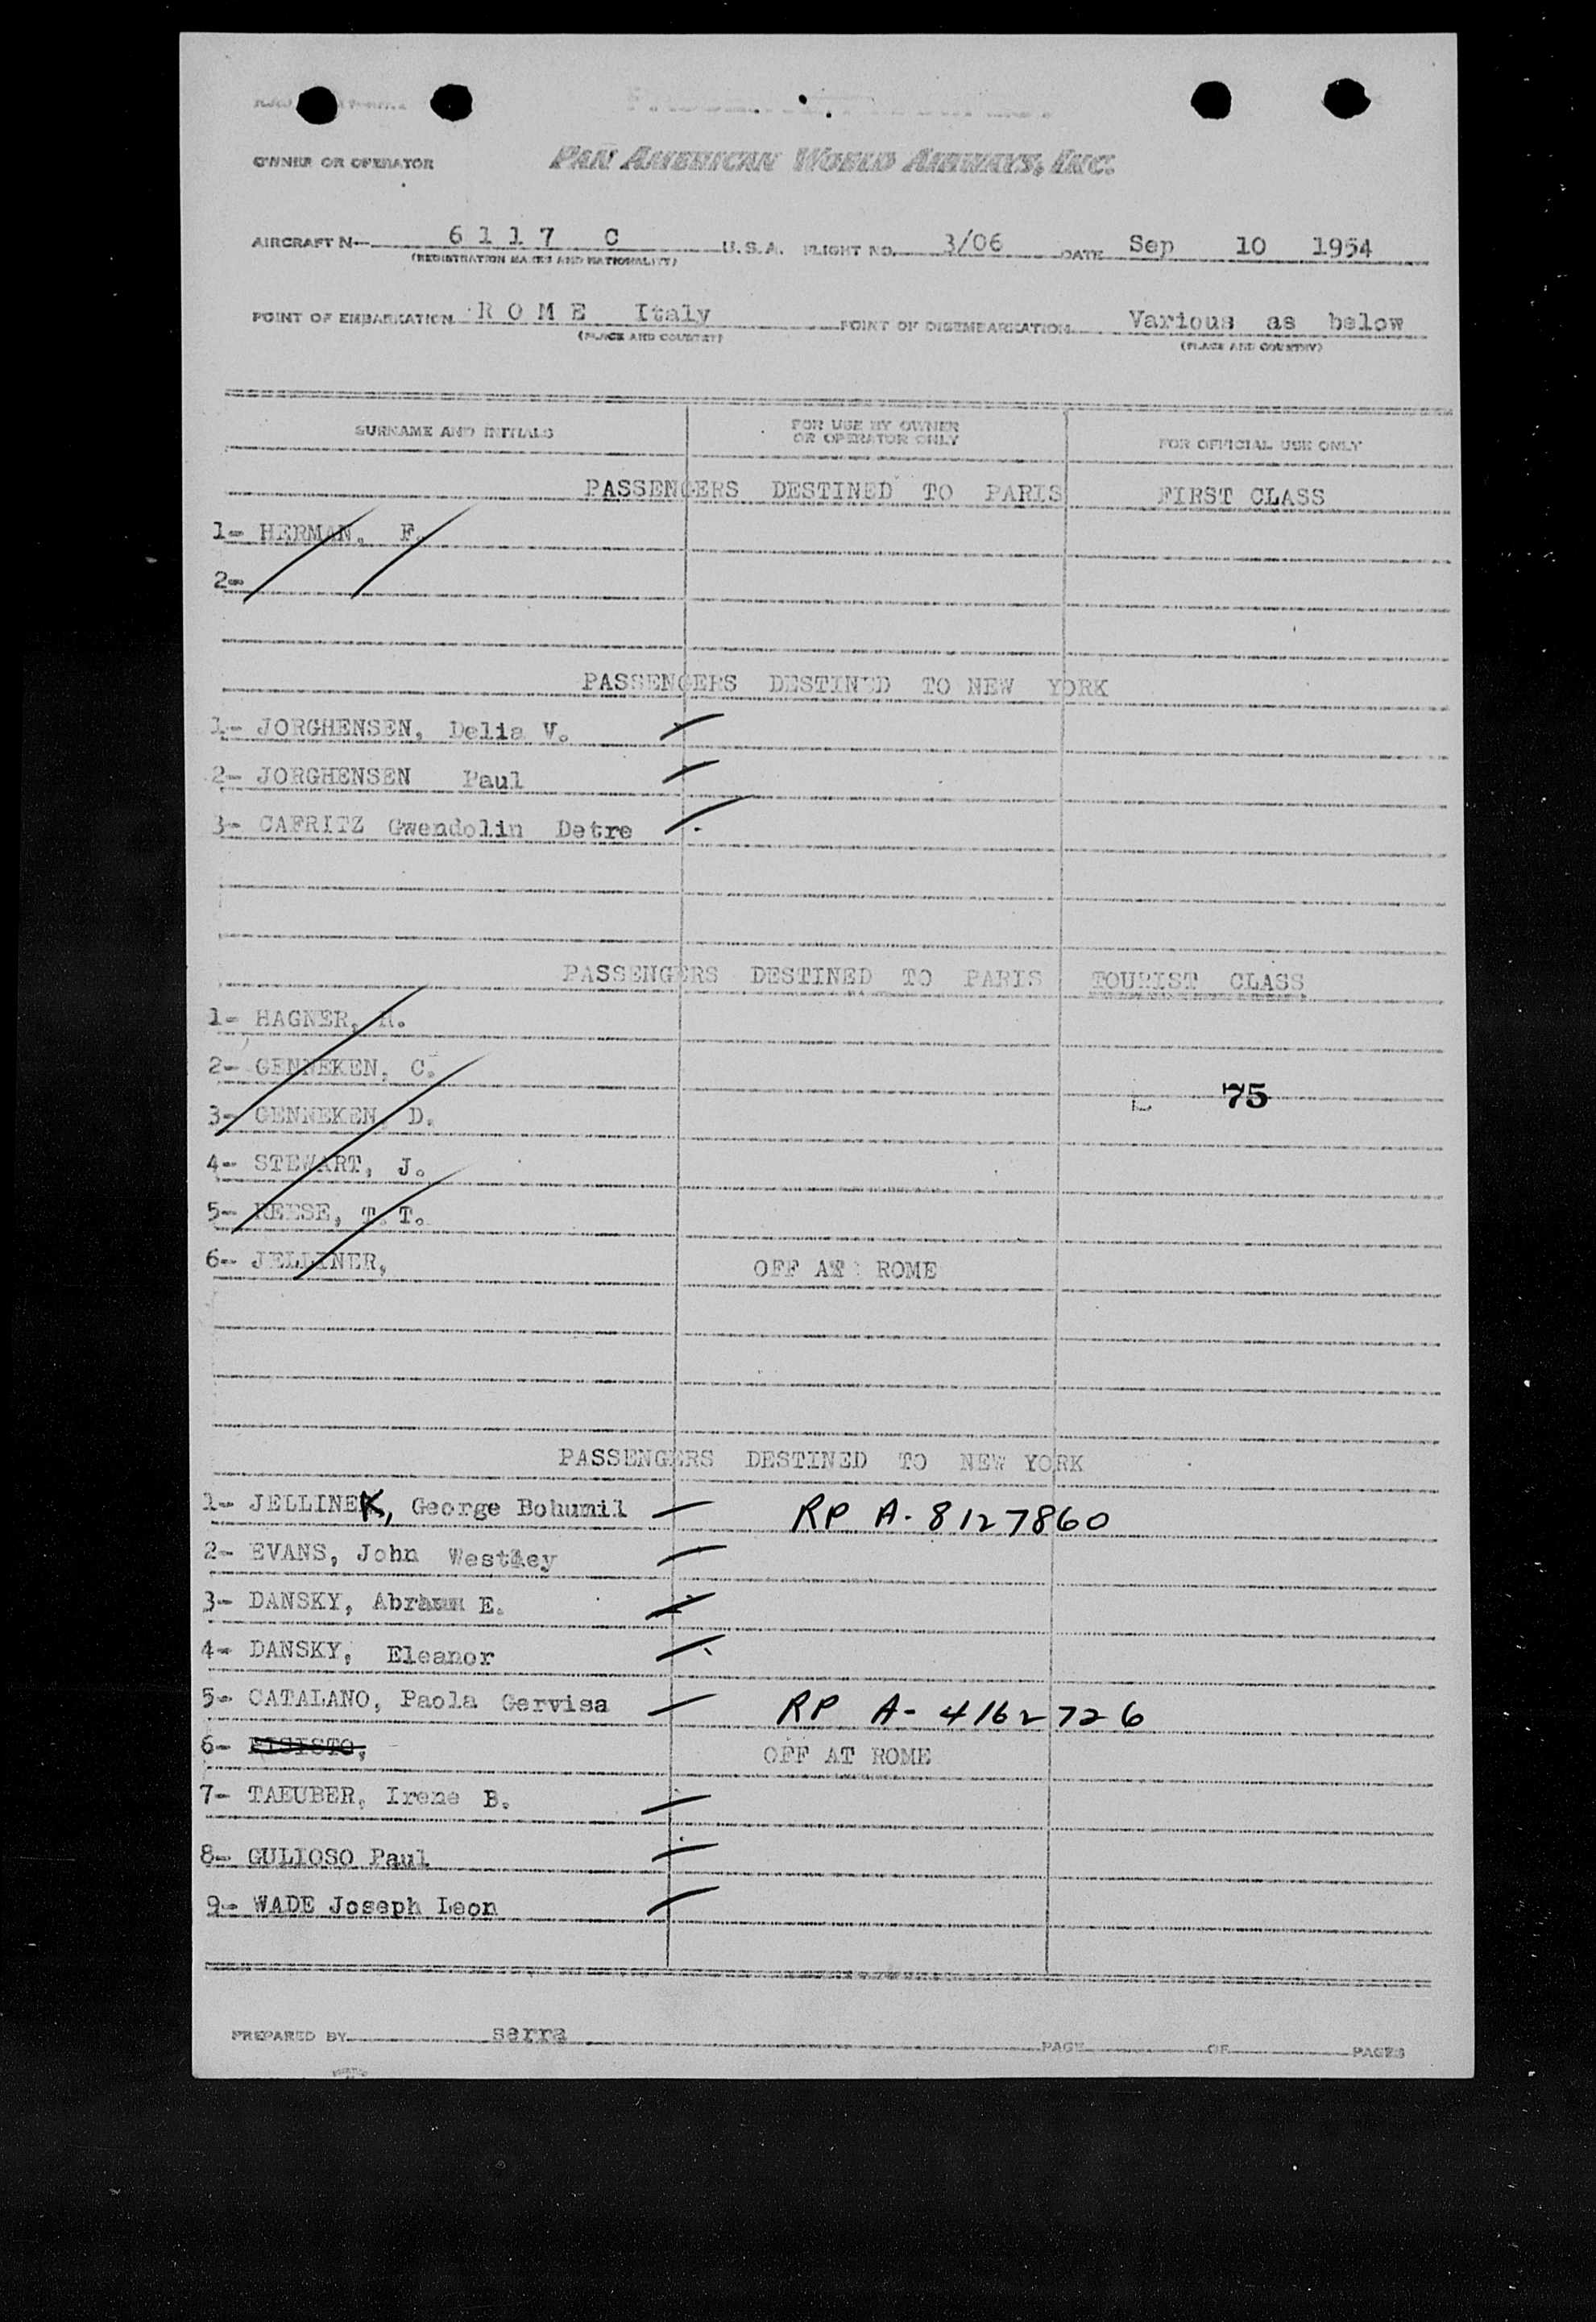 OWNER OR OPERATOR PAN AMERICAN WORLD AIRWAYS, INC.
AIRCRAFT N- 6 1 1 7 C U.S.A. FLIGHT NO. 3/06 DATE Sep 10 1954
(REGISTRATION MARKS AND NATIONALITY)
POINT OF EMBARKATION R O M E Italy POINT OF DISEMBARKATION Various as below
(PLACE AND COUNTRY) (PLACE AND COUNTRY)
SURNAME AND INITIALS FOR USE BY OWNER OR OPERATOR ONLY FOR OFFICIAL USE ONLY
PASSENGERS DESTINED TO PARIS FIRST CLASS
1- HERMAN, F.
2-
PASSENGERS DESTINED TO NEW YORK
1- JORGHENSEN, Delia V.
2- JORGHENSEN Paul
3- CAFRITZ Gwendolin Detre
PASSENGERS DESTINED TO PARIS TOURIST CLASS
1- HAGNER, R.
2- GENNEKEN, C.
3- GENNEKEN, D.
75
4- STEWART, J.
5- REESE, T. T.
6- JELLINER, OFF AT ROME
PASSENGERS DESTINED TO NEW YORK
1- JELLINEK, George Bohumil RP A-8127860
2- EVANS, John
3- DANSKY, E.
4- DANSKY, Eleanor
5- CATALANO, Paola Gervisa RP A-4162726
6- OFF AT ROME
7- TAEUBER, Irene B.
8- GULIOSO Paul
9- WADE Joseph Leon
PREPARED BY serra PAGE OF PAGES